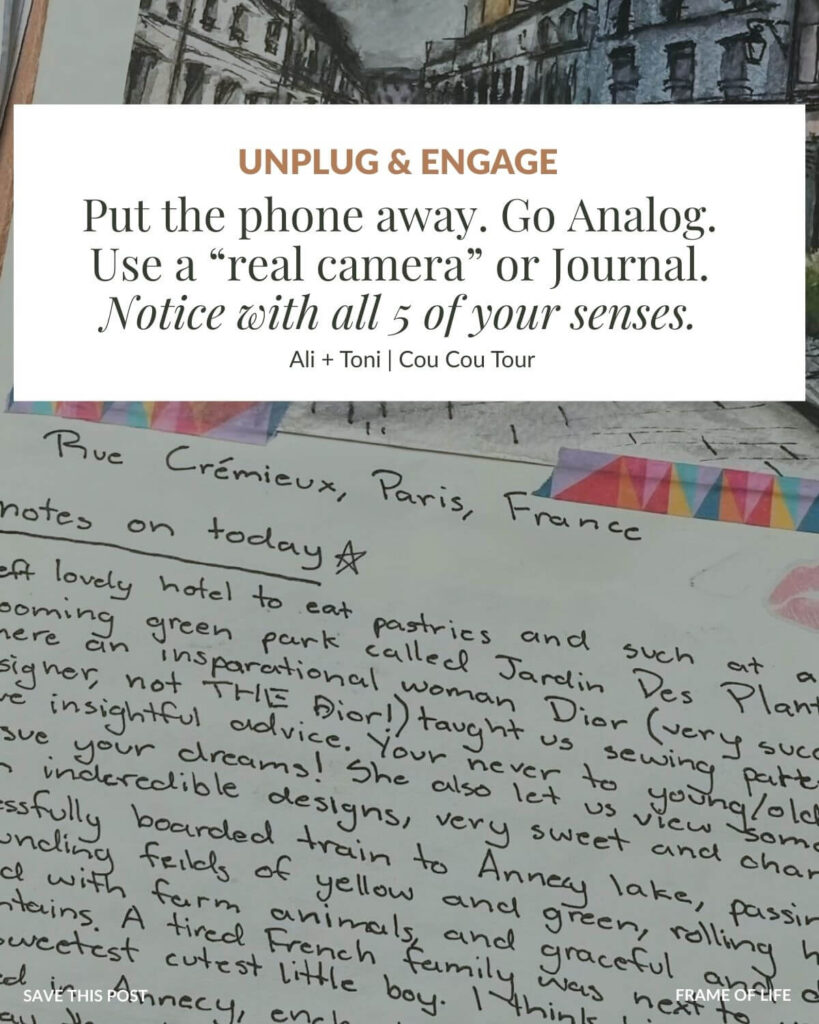 UNPLUG & ENGAGE
Put the phone away. Go Analog.
Use a “real camera” or Journal.
Notice with all 5 of your senses.
Ali + Toni | Cou Cou Tour
Rue Crémieux, Paris, France
notes on today
eft lovely hotel to eat pastries and such at a
ooming green park called Jardin Des Plant
here an insparational woman Dior (very succ
signer, not THE Dior!) taught us sewing patte
ve insightful advice. Your never to young/old
sue your dreams! She also let us view some
inderedible designs, very sweet and char
essfully boarded train to Annecy lake, passin
unding feilds of yellow and green, rolling h
d with farm animals, and graceful and
ntains. A tired French family was next to
sweetest cutest little boy. I think
ed in Annecy, enc
SAVE THIS POST
FRAME OF LIFE